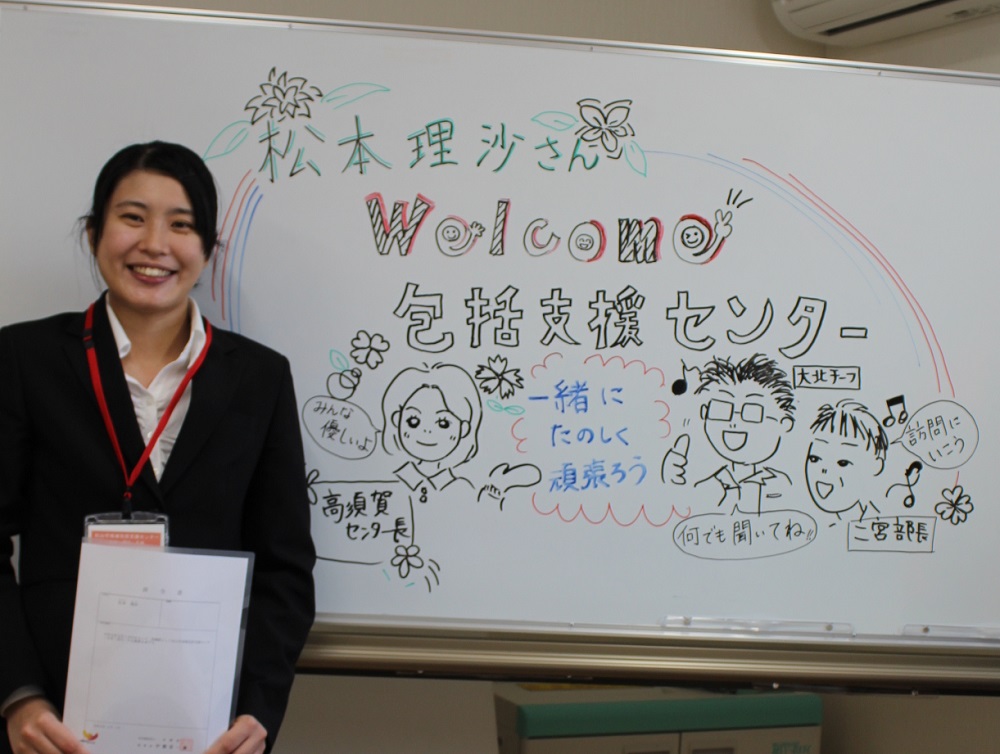 松本理沙さん
Welcome
包括支援センター
みんな
優しいよ
高須賀
センター長
一緒に
たのしく
頑張ろう
大北チーフ
何でも聞いてね!!
訪問に
いこう
二宮部長